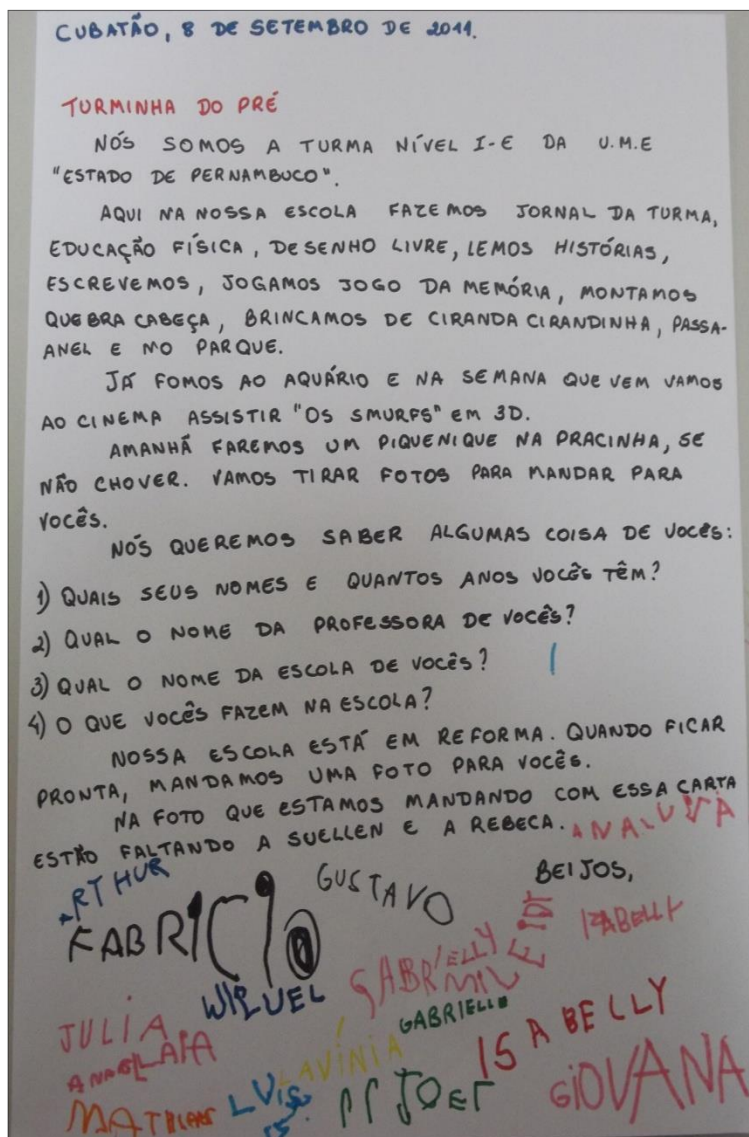 CUBATÃO, 8 DE SETEMBRO DE 2011.
TURMINHA DO PRÉ
NÓS SOMOS A TURMA NÍVEL I-E DA U.M.E
"ESTADO DE PERNAMBUCO".
AQUI NA NOSSA ESCOLA FAZEMOS JORNAL DA TURMA,
EDUCAÇÃO FÍSICA, DESENHO LIVRE, LEMOS HISTÓRIAS,
ESCREVEMOS, JOGAMOS JOGO DA MEMÓRIA, MONTAMOS
QUEBRA CABEÇA, BRINCAMOS DE CIRANDA CIRANDINHA, PASSA-
ANEL E NO PARQUE.
JÁ FOMOS AO AQUÁRIO E NA SEMANA QUE VEM VAMOS
AO CINEMA ASSISTIR "OS SMURFS" EM 3D.
AMANHÃ FAREMOS UM PIQUENIQUE NA PRACINHA, SE
NÃO CHOVER. VAMOS TIRAR FOTOS PARA MANDAR PARA
VOCÊS.
NÓS QUEREMOS SABER ALGUMAS COISA DE VOCÊS:
1) QUAIS SEUS NOMES E QUANTOS ANOS VOCÊS TÊM?
2) QUAL O NOME DA PROFESSORA DE VOCÊS?
3) QUAL O NOME DA ESCOLA DE VOCÊS?
4) O QUE VOCÊS FAZEM NA ESCOLA?
NOSSA ESCOLA ESTÁ EM REFORMA. QUANDO FICAR
PRONTA, MANDAMOS UMA FOTO PARA VOCÊS.
NA FOTO QUE ESTAMOS MANDANDO COM ESSA CARTA
ESTÃO FALTANDO A SUELLEN E A REBECA.
BEIJOS,
ARTHUR
GUSTAVO
FABRICIO
IZABELLY
GABRIELLY
GABRIELLE
JULIA
LAVÍNIA
ISABELLY
GIOVANA